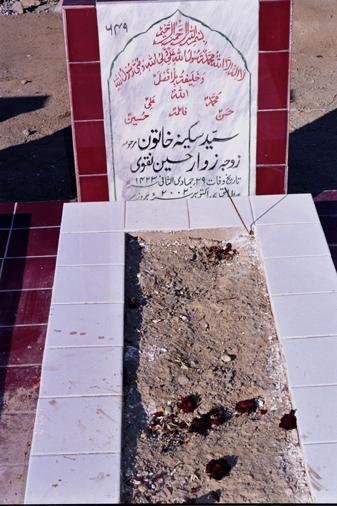 ۶۴۹
بسم اللہ الرحمن الرحیم
لا الہ الا اللہ محمد رسول اللہ علی ولی اللہ وصی رسول اللہ
وخلیفتہ بلا فصل
اللہ
محمد علی
حسن فاطمہ حسین
سید سکینہ خاتون مرحومہ
زوجہ زوار حسین نقوی
تاریخ وفات ۲۹؍ جمادی الثانی ۱۴۲۳
مطابق اکتوبر ۲۰۰۲ بروز